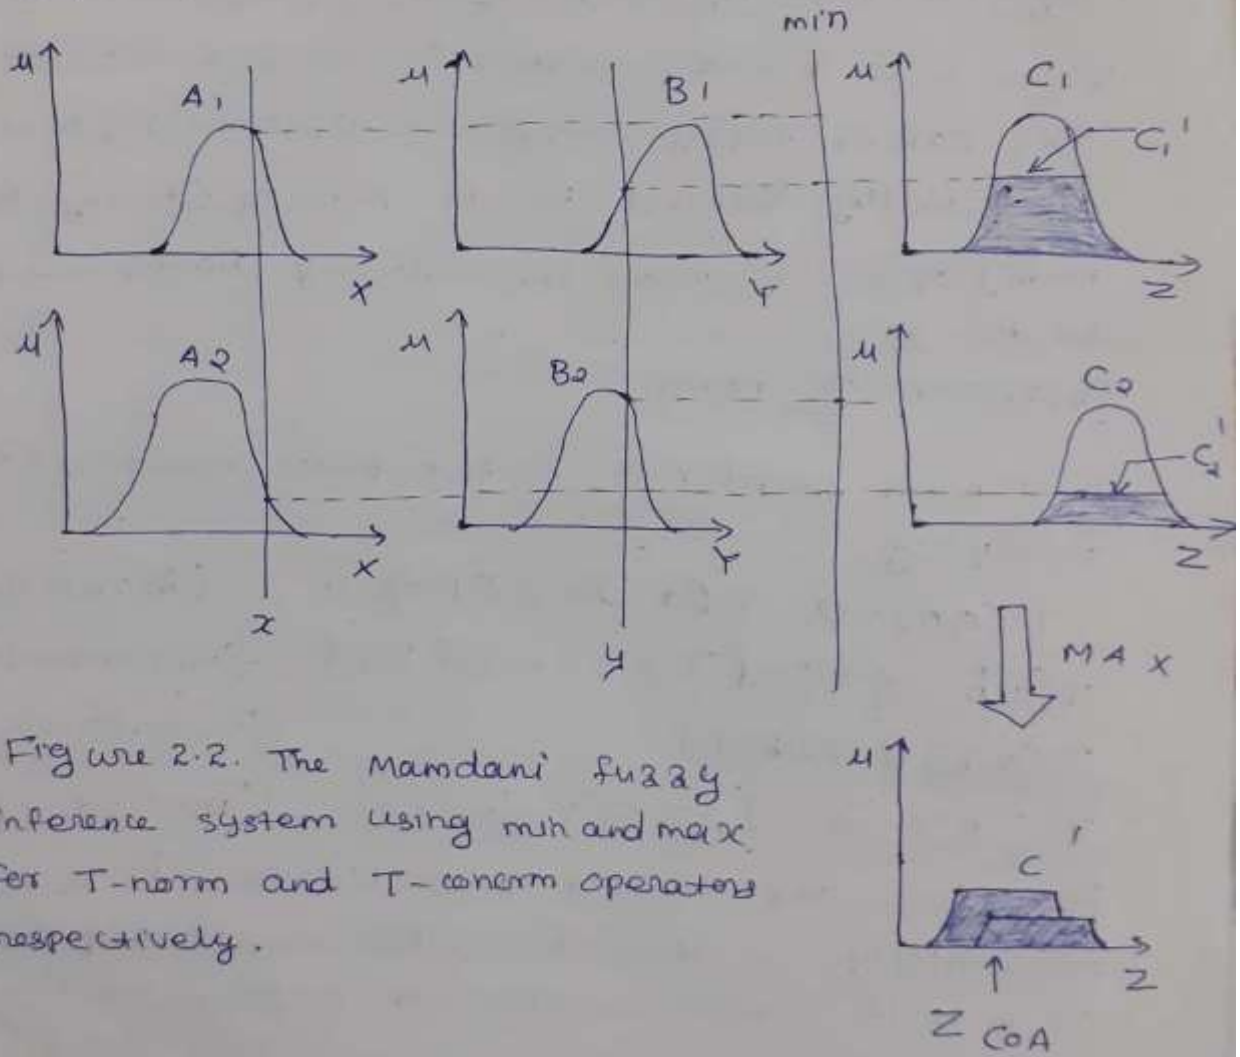 min
μ A1 μ B1 μ C1
C1'
X Y Z
μ A2 μ B2 μ C2
C2'
X Y Z
x
y
MAX
μ
C'
Z
Z COA
Figure 2.2. The Mamdani fuzzy
inference system using min and max
for T-norm and T-conorm operators
respectively.